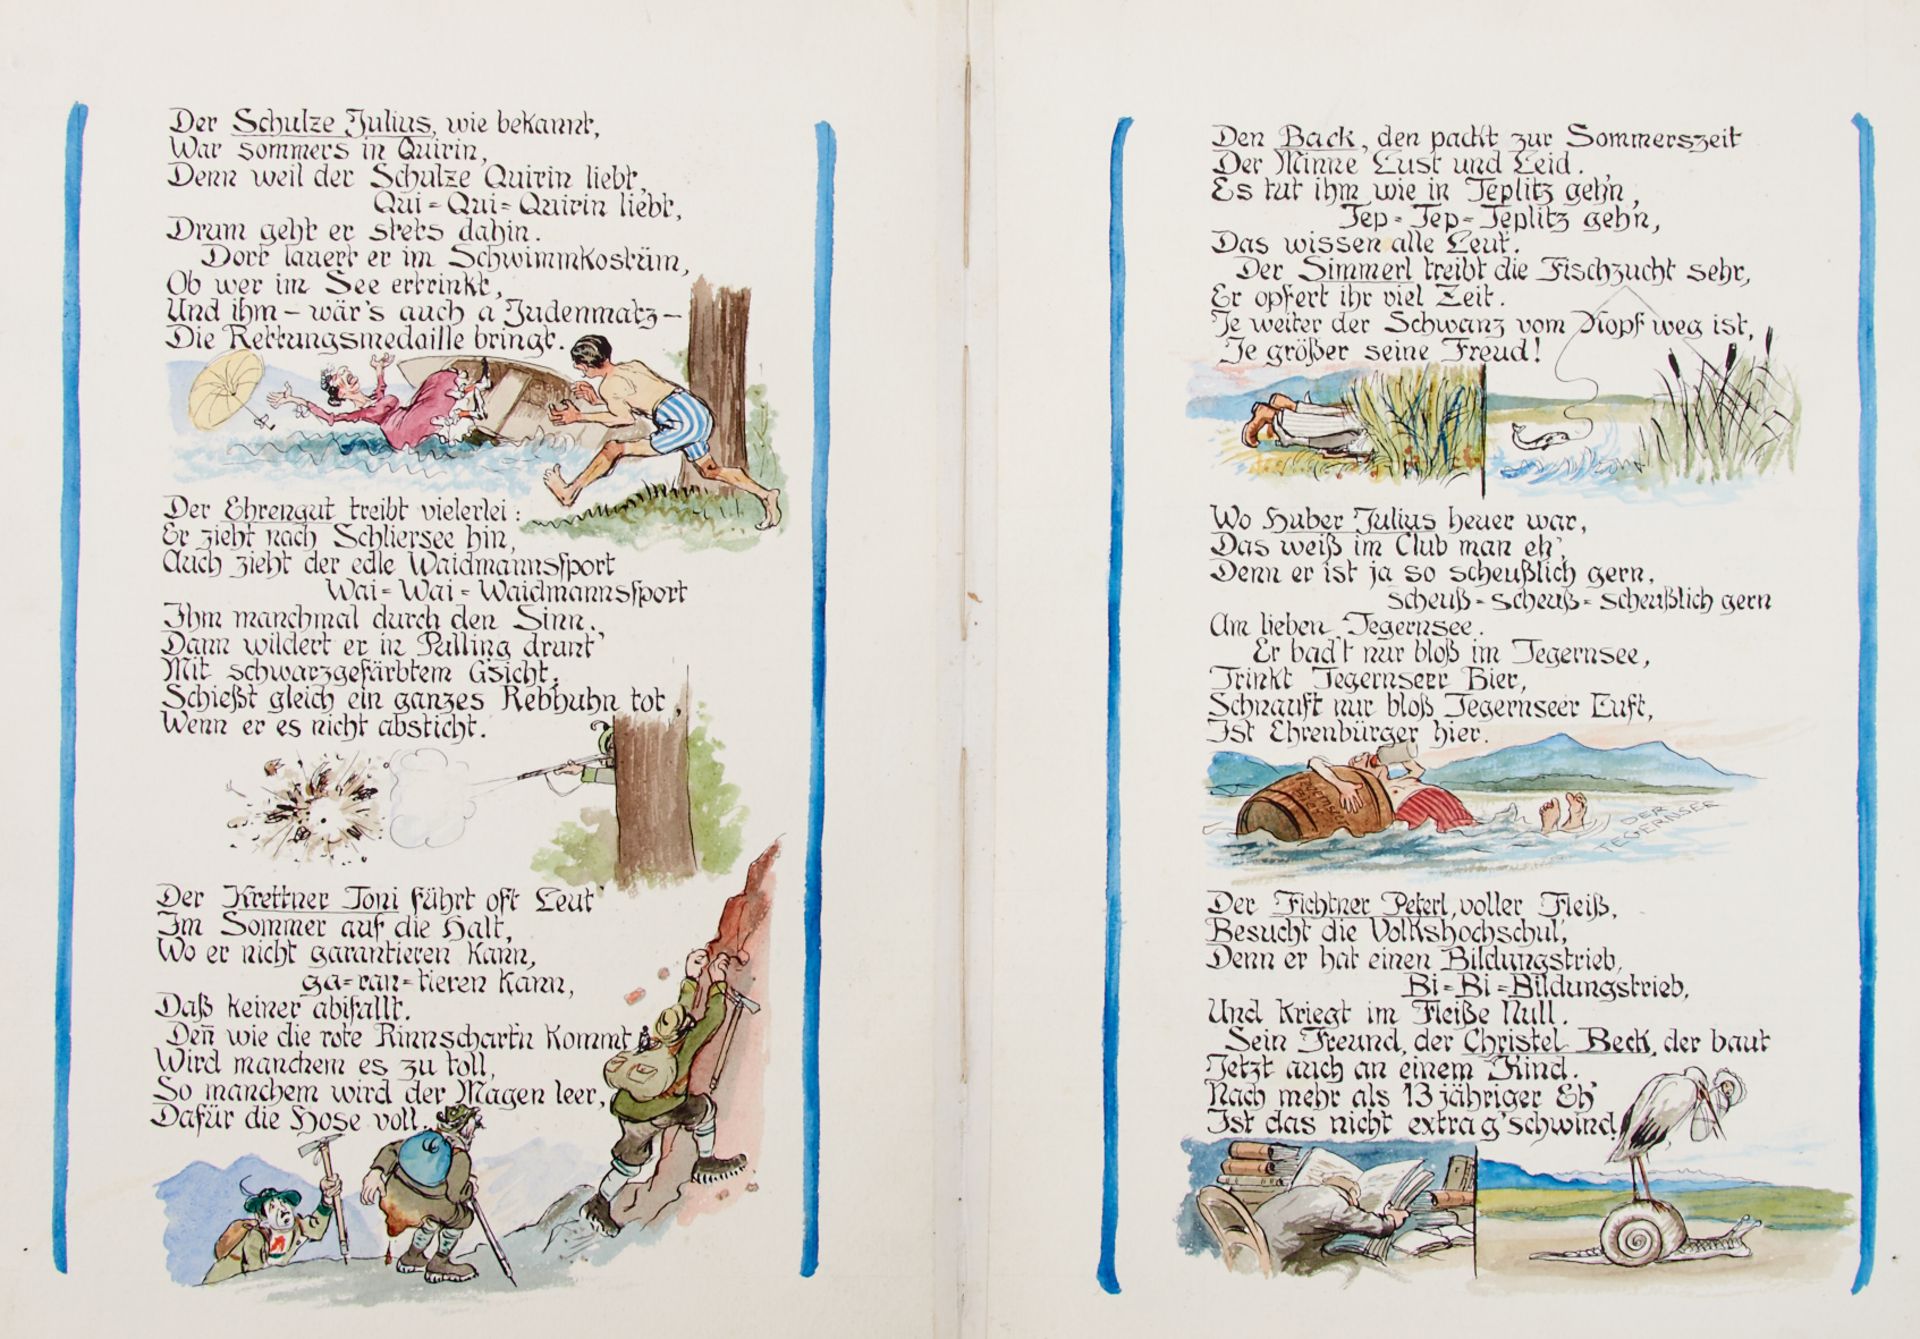 Der Schulze Julius, wie bekannt,
War sommers in Quirin,
Denn weil der Schulze Quirin liebt,
Qui-Qui-Quirin liebt,
Drum geht er stets dahin.
Dort lauert er im Schwimmkostüm,
Ob wer im See ertrinkt,
Und ihm – wär's auch a Judenmatz –
Die Rettungsmedaille bringt.
Der Ehrengut treibt vielerlei:
Er zieht nach Schliersee hin,
Auch zieht der edle Waidmannssport
Wai-Wai-Waidmannssport
Ihm manchmal durch den Sinn.
Dann wildert er in Pulling drunt'
Mit schwarzgefärbtem G'sicht,
Schießt gleich ein ganzes Rebhuhn tot,
Wenn er es nicht absticht.
Der Krettner Toni führt oft Leut'
Im Sommer auf die Halt,
Wo er nicht garantieren kann,
ga-ran-tieren kann,
Daß keiner abifallt.
Denn wie die rote Rinnschart'n kommt
Wird manchem es zu toll,
So manchem wird der Magen leer,
Dafür die Hose voll.
Den Back, den packt zur Sommerszeit
Der Minne Lust und Leid.
Es tut ihm wie in Teplitz geh'n,
Tep-Tep-Teplitz geh'n,
Das wissen alle Leut'.
Der Simmerl treibt die Fischzucht sehr,
Er opfert ihr viel Zeit.
Je weiter der Schwanz vom Kopf weg ist,
Je größer seine Freud!
Wo Huber Julius heuer war,
Das weiß im Club man eh',
Denn er ist ja so scheußlich gern,
scheuß-scheuß-scheußlich gern
Am lieben Tegernsee.
Er bad't nur bloß im Tegernsee,
Trinkt Tegernseer Bier,
Schnauft nur bloß Tegernseer Luft,
Ist Ehrenbürger hier.
Tegernseer Bier
DER TEGERNSEER
Der Fichtner Peterl, voller Fleiß,
Besucht die Volkshochschul',
Denn er hat einen Bildungstrieb,
Bi-Bi-Bildungstrieb,
Und kriegt im Fleiße Null.
Sein Freund, der Christel Beck, der baut
Jetzt auch an einem Kind.
Nach mehr als 13 jähriger Eh'
Ist das nicht extra g'schwind.